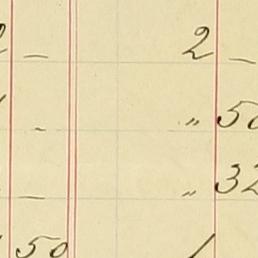 2 — 2 —
- „ 50
— „ 32
50 1